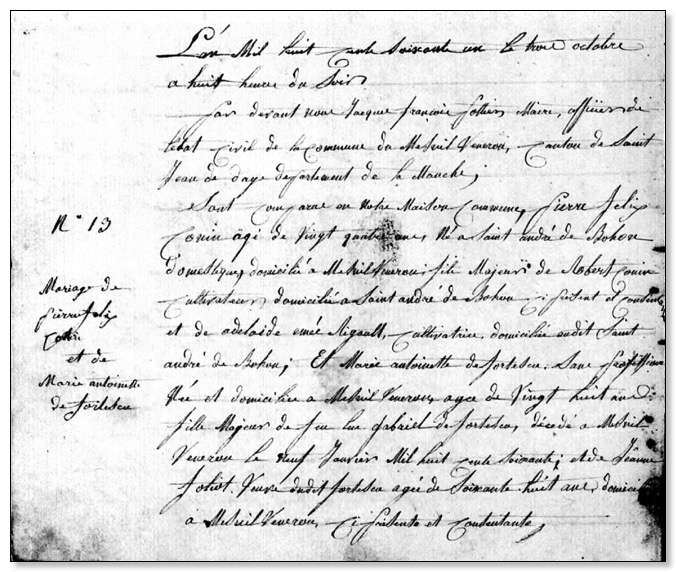 L'an Mil huit cente soixante un le trois octobre
a huit heures du Soir
Par devant nous Jacque françois follien Maire, officier de
l'état Civil de la Commune du Mesnil Veneron, Canton de Saint
Jean de daye departement de la Manche;
Sont comparue en notre Maison Commune, Pierre felix
Conin âgé de Vingt quatre ans, Né a Saint andré de Bohon
Domestique, domicilié a Mesnil Veneron, fils Majeur de Robert Conin
Cultivateur, domicilié a Saint andré de Bohon Ci présent et Consentant
et de adelaide emée Rigault, Cultivatrice, domiciliée audit Saint
andré de Bohon; Et Marie antoinette de fortescu, Sans profession
Née et domiciliée a Mesnil Veneron, agee de Vingt huit ans
fille Majeur de feu luc gabriel de fortescu, décédé a Mesnil
N° 13
Mariage de
Pierre felix
Conin
et de
Marie antoinette
de fortescu
Veneron le neuf Janvier Mil huit cente soixante; et de Jeanne
Veuve dudit fortescu agée de Soixante huit ans, domiciliée
à Mesnil Veneron, Ci présente et Consentante,